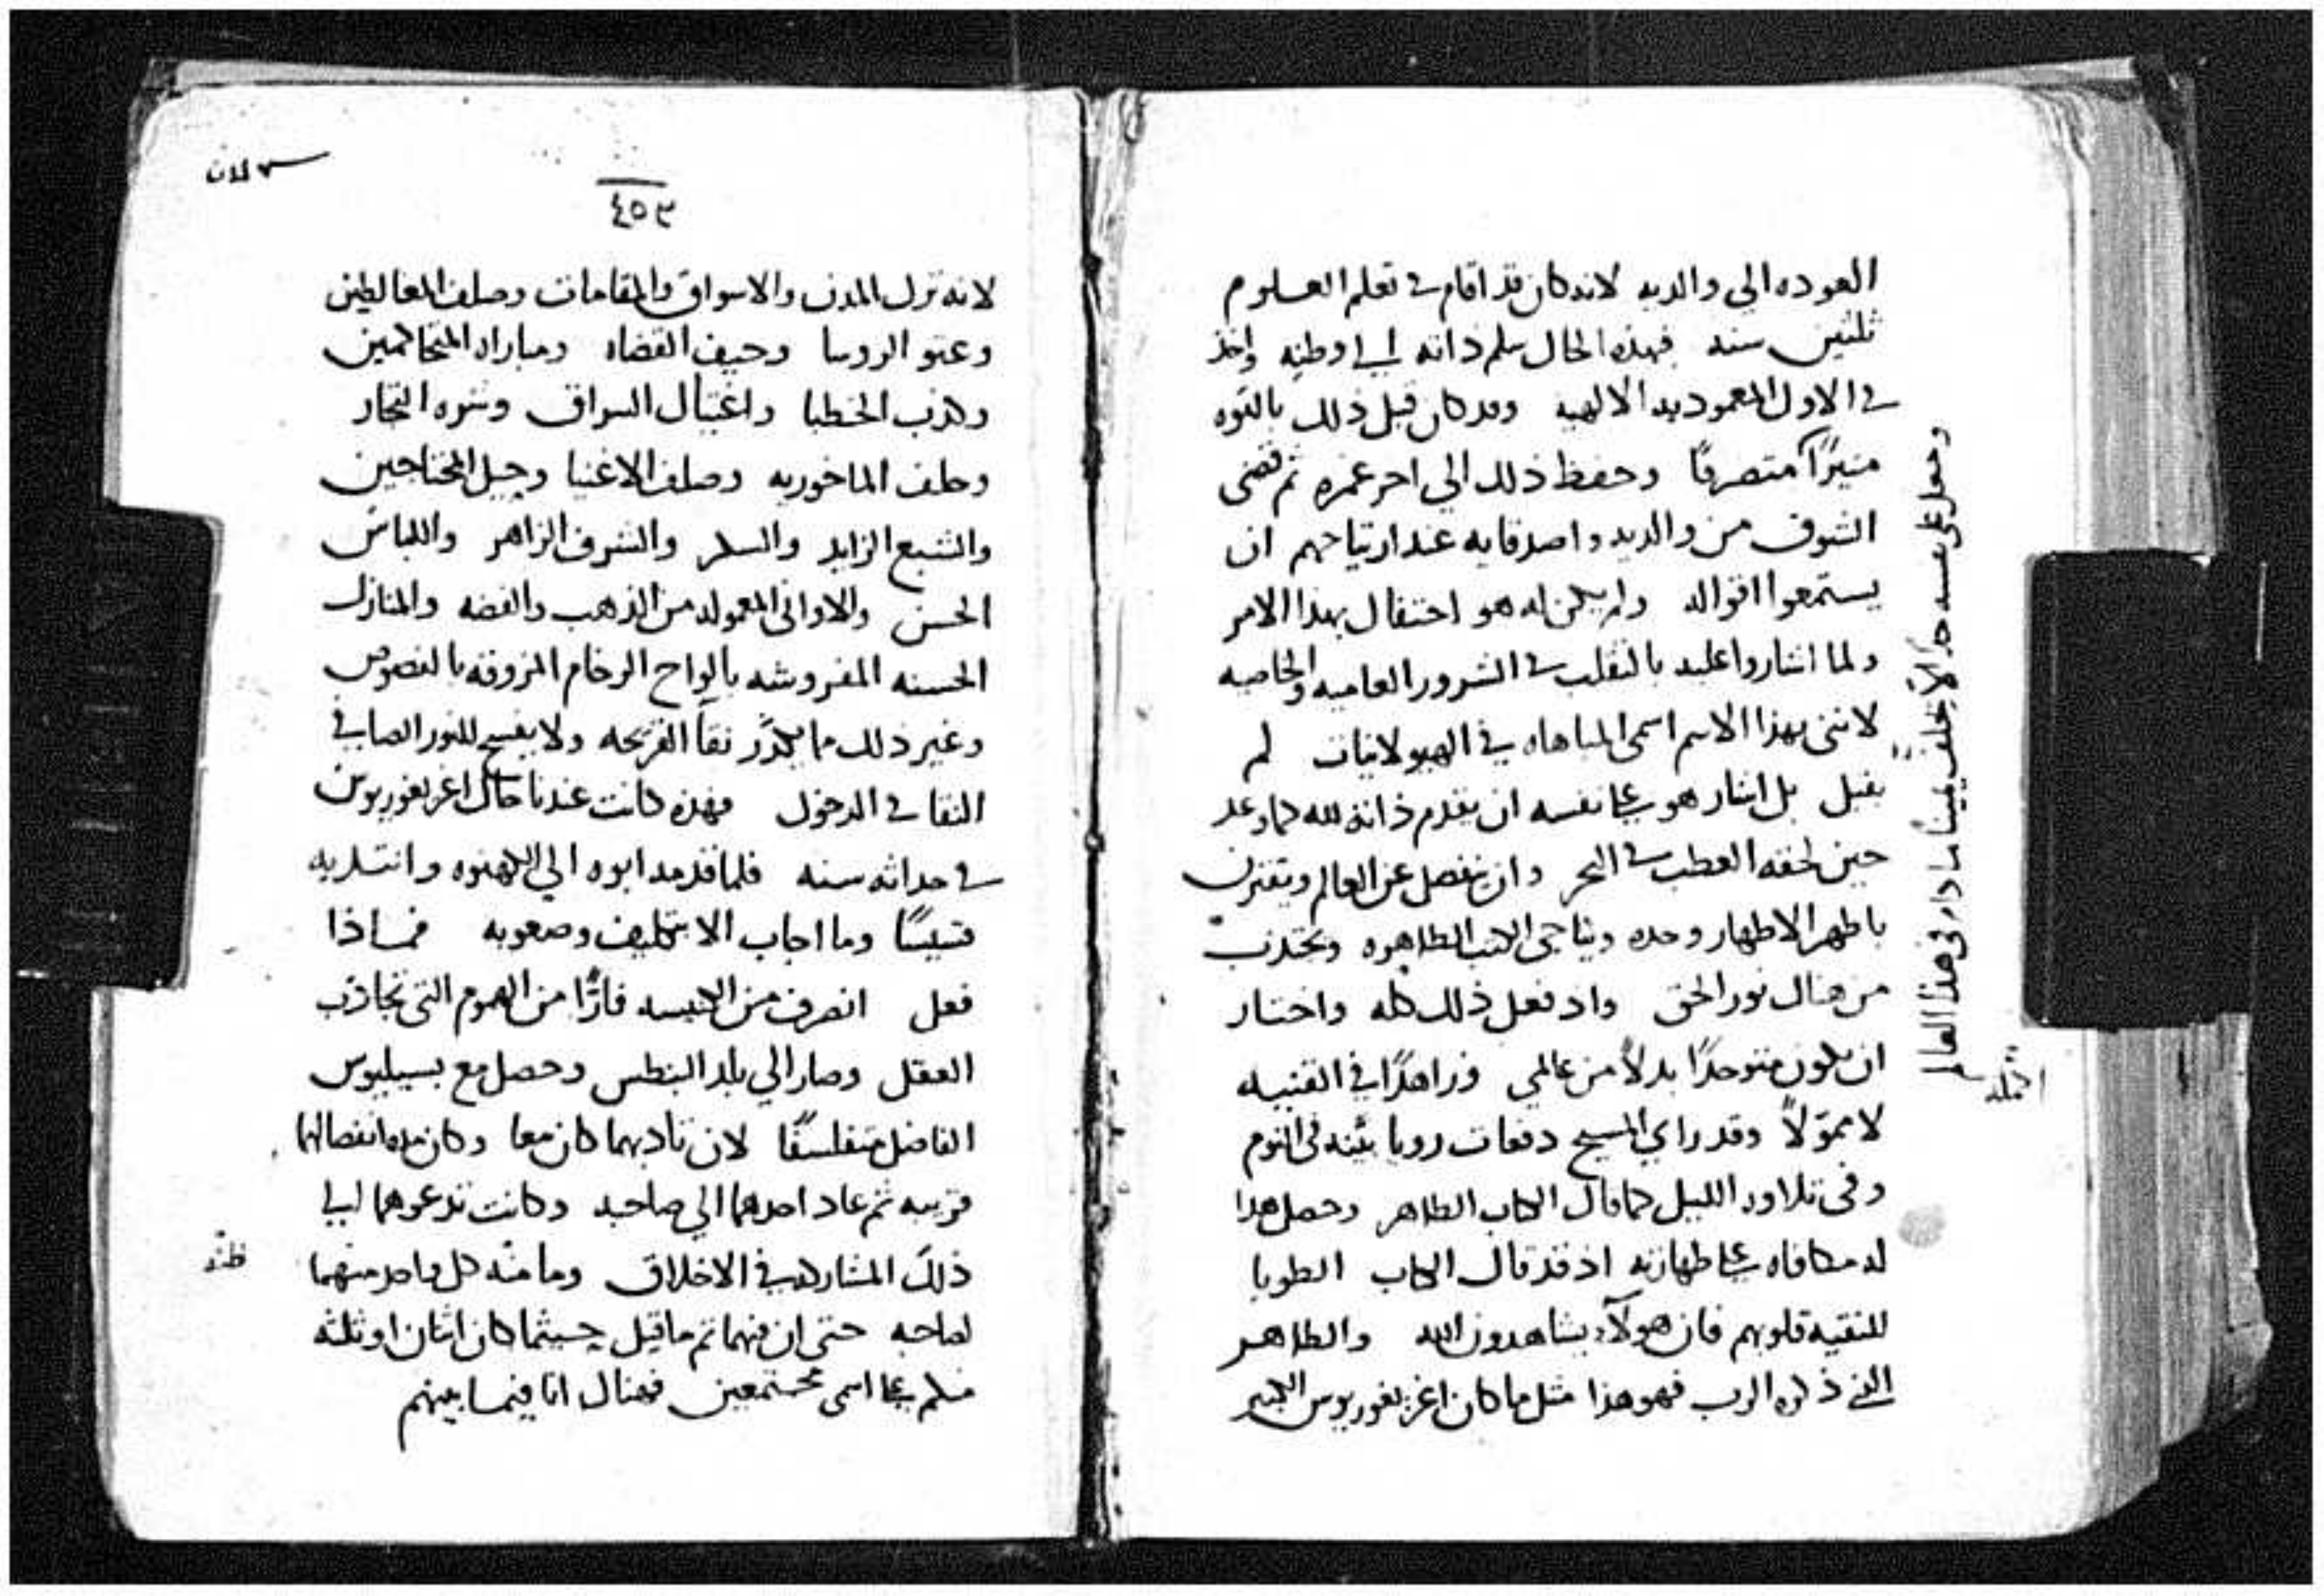 العوده الى والديه لانه كان قد اقام في تعلم العلوم
ثلثين سنه فبهذه الحال سلم ذاته الى اوطنه واخذ
في الاول المعموديه الالهيه وقد كان قبل ذلك بالقوه
متصرفًا وحفظ ذلك الي اخر عمره ثم قضى
الشوق من والديه واصدقايه عند ارتياحهم ان
يستمعوا اقواله ولم يكن له هو احتفال بهذا الامر
ولما اشاروا عليه بالتقلب في الشرور العاميه والخاصيه
لانني بهذا الاسم اسمى المباهاه في الهيولانيات لم
يقبل بل اشار هو على نفسه ان يقدم ذاته لله كما وعد
حين لحقه العطب في البحر وان ينفصل عن العالم ويقترن
باطهر الاطهار وحده ويناجى الكتب الطاهره ويجتذب
من هناك نور الحق واذ فعل ذلك كله واختار
ان يكون متوحدًا بدلاً من عالمي وزاهدًا في القنيه
لا ممولاً وقد راي المسيح دفعات رويا بينه في النوم
وفى تلاوه الليل كما قال الكتاب الطاهر وحصل هذا
له مكافاه على طهارته اذ قد قال الكتاب الطوبا
للنقيه قلوبهم فان هولآء يشاهدون الله والطاهر
الذي ذكره الرب فهو هذا مثل ما كان اغريغوريوس الكبير
وجعل على نفسه حدًا لاّ يحلف يمينًا ما دام فى هذا العالم
٤٥٣
لانه ترك المدن والاسواق والمقامات وصلف المغالطين
وعتو الروسا وحيف القضاه ومباراه المتحاكمين
وكذب الخطبا واغتيال السراق وشره التجار
وصلف الاغنيا وحيل المحتاجين
والشبع الزايد والسكر والشرف الزاهر واللباس
الحسن والاواني المعموله من الذهب والفضه والمنازل
الحسنه المفروشه بالواح الرخام المزوقه بالفصوص
وغير ذلك مما يكدّر نقا القريحه ولا يفسح للنور الصافي
النقا في الدخول فهذه كانت عندنا حال اغريغوريوس
في حداثه سنه فلما قدمه ابوه الي الكهنوه وانتدبه
قسيسًا وما اجاب الا بتكليف وصعوبه فماذا
فعل انصرف من الكنيسه فارًّا من الهموم التي تجاذب
العقل وصار الي بلد البنطس وحصل مع بسيليوس
الفاضل متفلسفًا لان تاديبهما كان معا وكان مده انفصالهما
قريبه ثم عاد احدهما الي صاحبه وكانت تدعوهما الى
ذلك المشاركه في الاخلاق وما منّه كل واحد منهما
لصاحبه حتى ان فيهما تم ما قيل حيثما كان اثنان او ثلثه
منكم على اسمى مجتمعين فهناك انا فيما بينهم